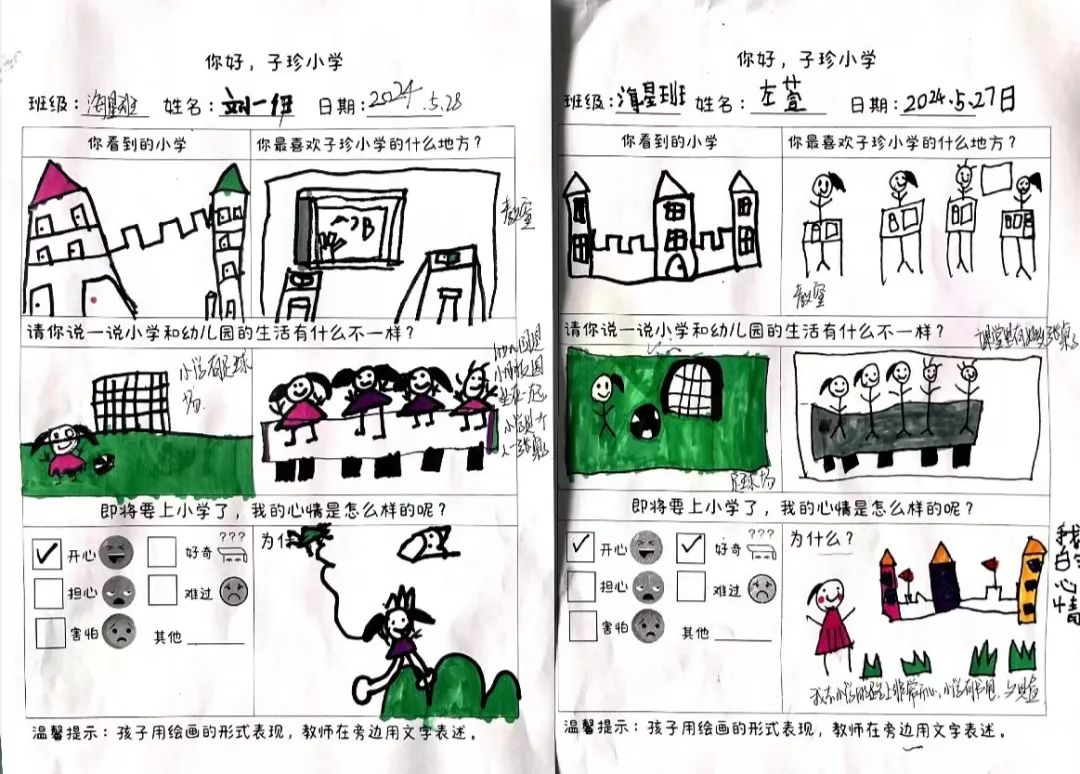 你好，子珍小学
班级：海星班 姓名：刘一伊 日期：2024.5.28
你看到的小学
你最喜欢子珍小学的什么地方？
教室
请你说一说小学和幼儿园的生活有什么不一样？
小学有足球
场
幼儿园围
坐在一起
小学是一个
人一张桌子
即将要上小学了，我的心情是怎么样的呢？
✓ 开心 好奇 ???
担心 难过
害怕 其他
为什
温馨提示：孩子用绘画的形式表现，教师在旁边用文字表述。
你好，子珍小学
班级：海星班 姓名：左萱 日期：2024.5.27日
你看到的小学
你最喜欢子珍小学的什么地方？
教室
请你说一说小学和幼儿园的生活有什么不一样？
足球场
即将要上小学了，我的心情是怎么样的呢？
✓ 开心 ✓ 好奇 ???
担心 难过
害怕 其他
为什么？
我
的
心
情
温馨提示：孩子用绘画的形式表现，教师在旁边用文字表述。